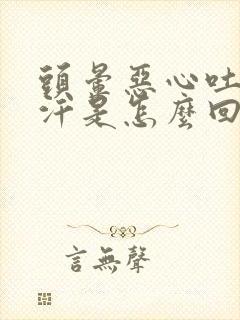 頭暈惡心吐
汗是怎麼回
言無聲